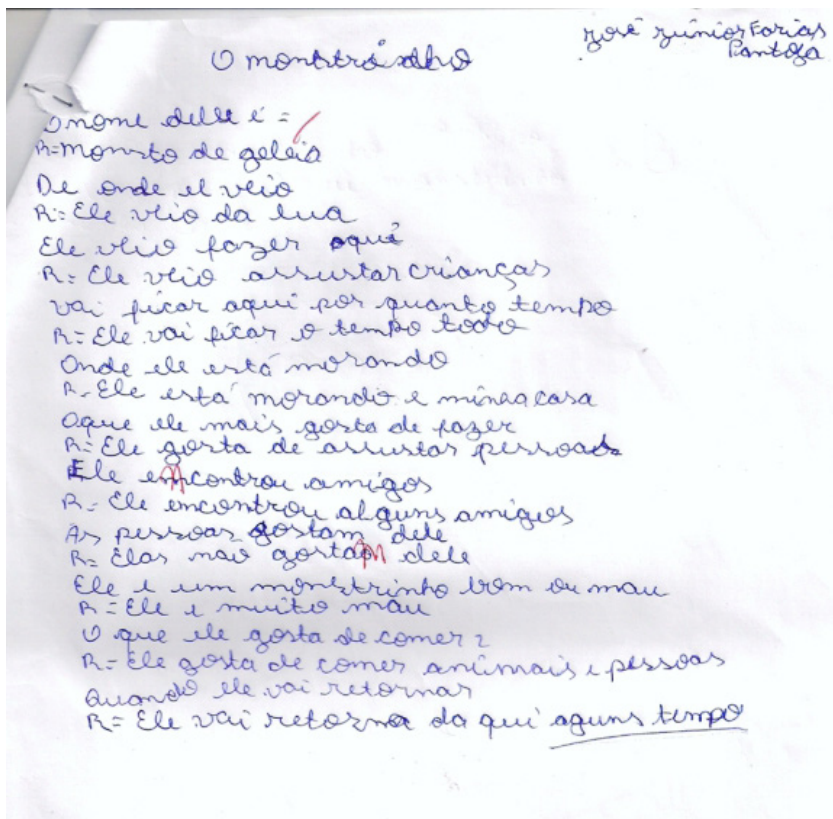 José Júnior Farias
Pantoja
O monstrinho
O nome delle é =
R=monsto de geleia
De onde el veio
R= Ele veio da lua
Ele veio fazer aqui
R= Ele veio assustar crianças
Vai ficar aqui por quanto tempo
R= Ele vai ficar o tempo todo
Onde ele está morando
R= Ele está morando e minha casa
Oque ele mais gosta de fazer
R= Ele gosta de assustar pessoas
Ele encontrou amigos
R= Ele encontrou alguns amigos
As pessoas gostam dele
R= Elas não gostam dele
Ele é um monstrinho bom ou mau
R= Ele é muito mau
O que ele gosta de comer?
R= Ele gosta de comer animais e pessoas
Quando ele vai retornar
R= Ele vai retorna da qui aguns tempo